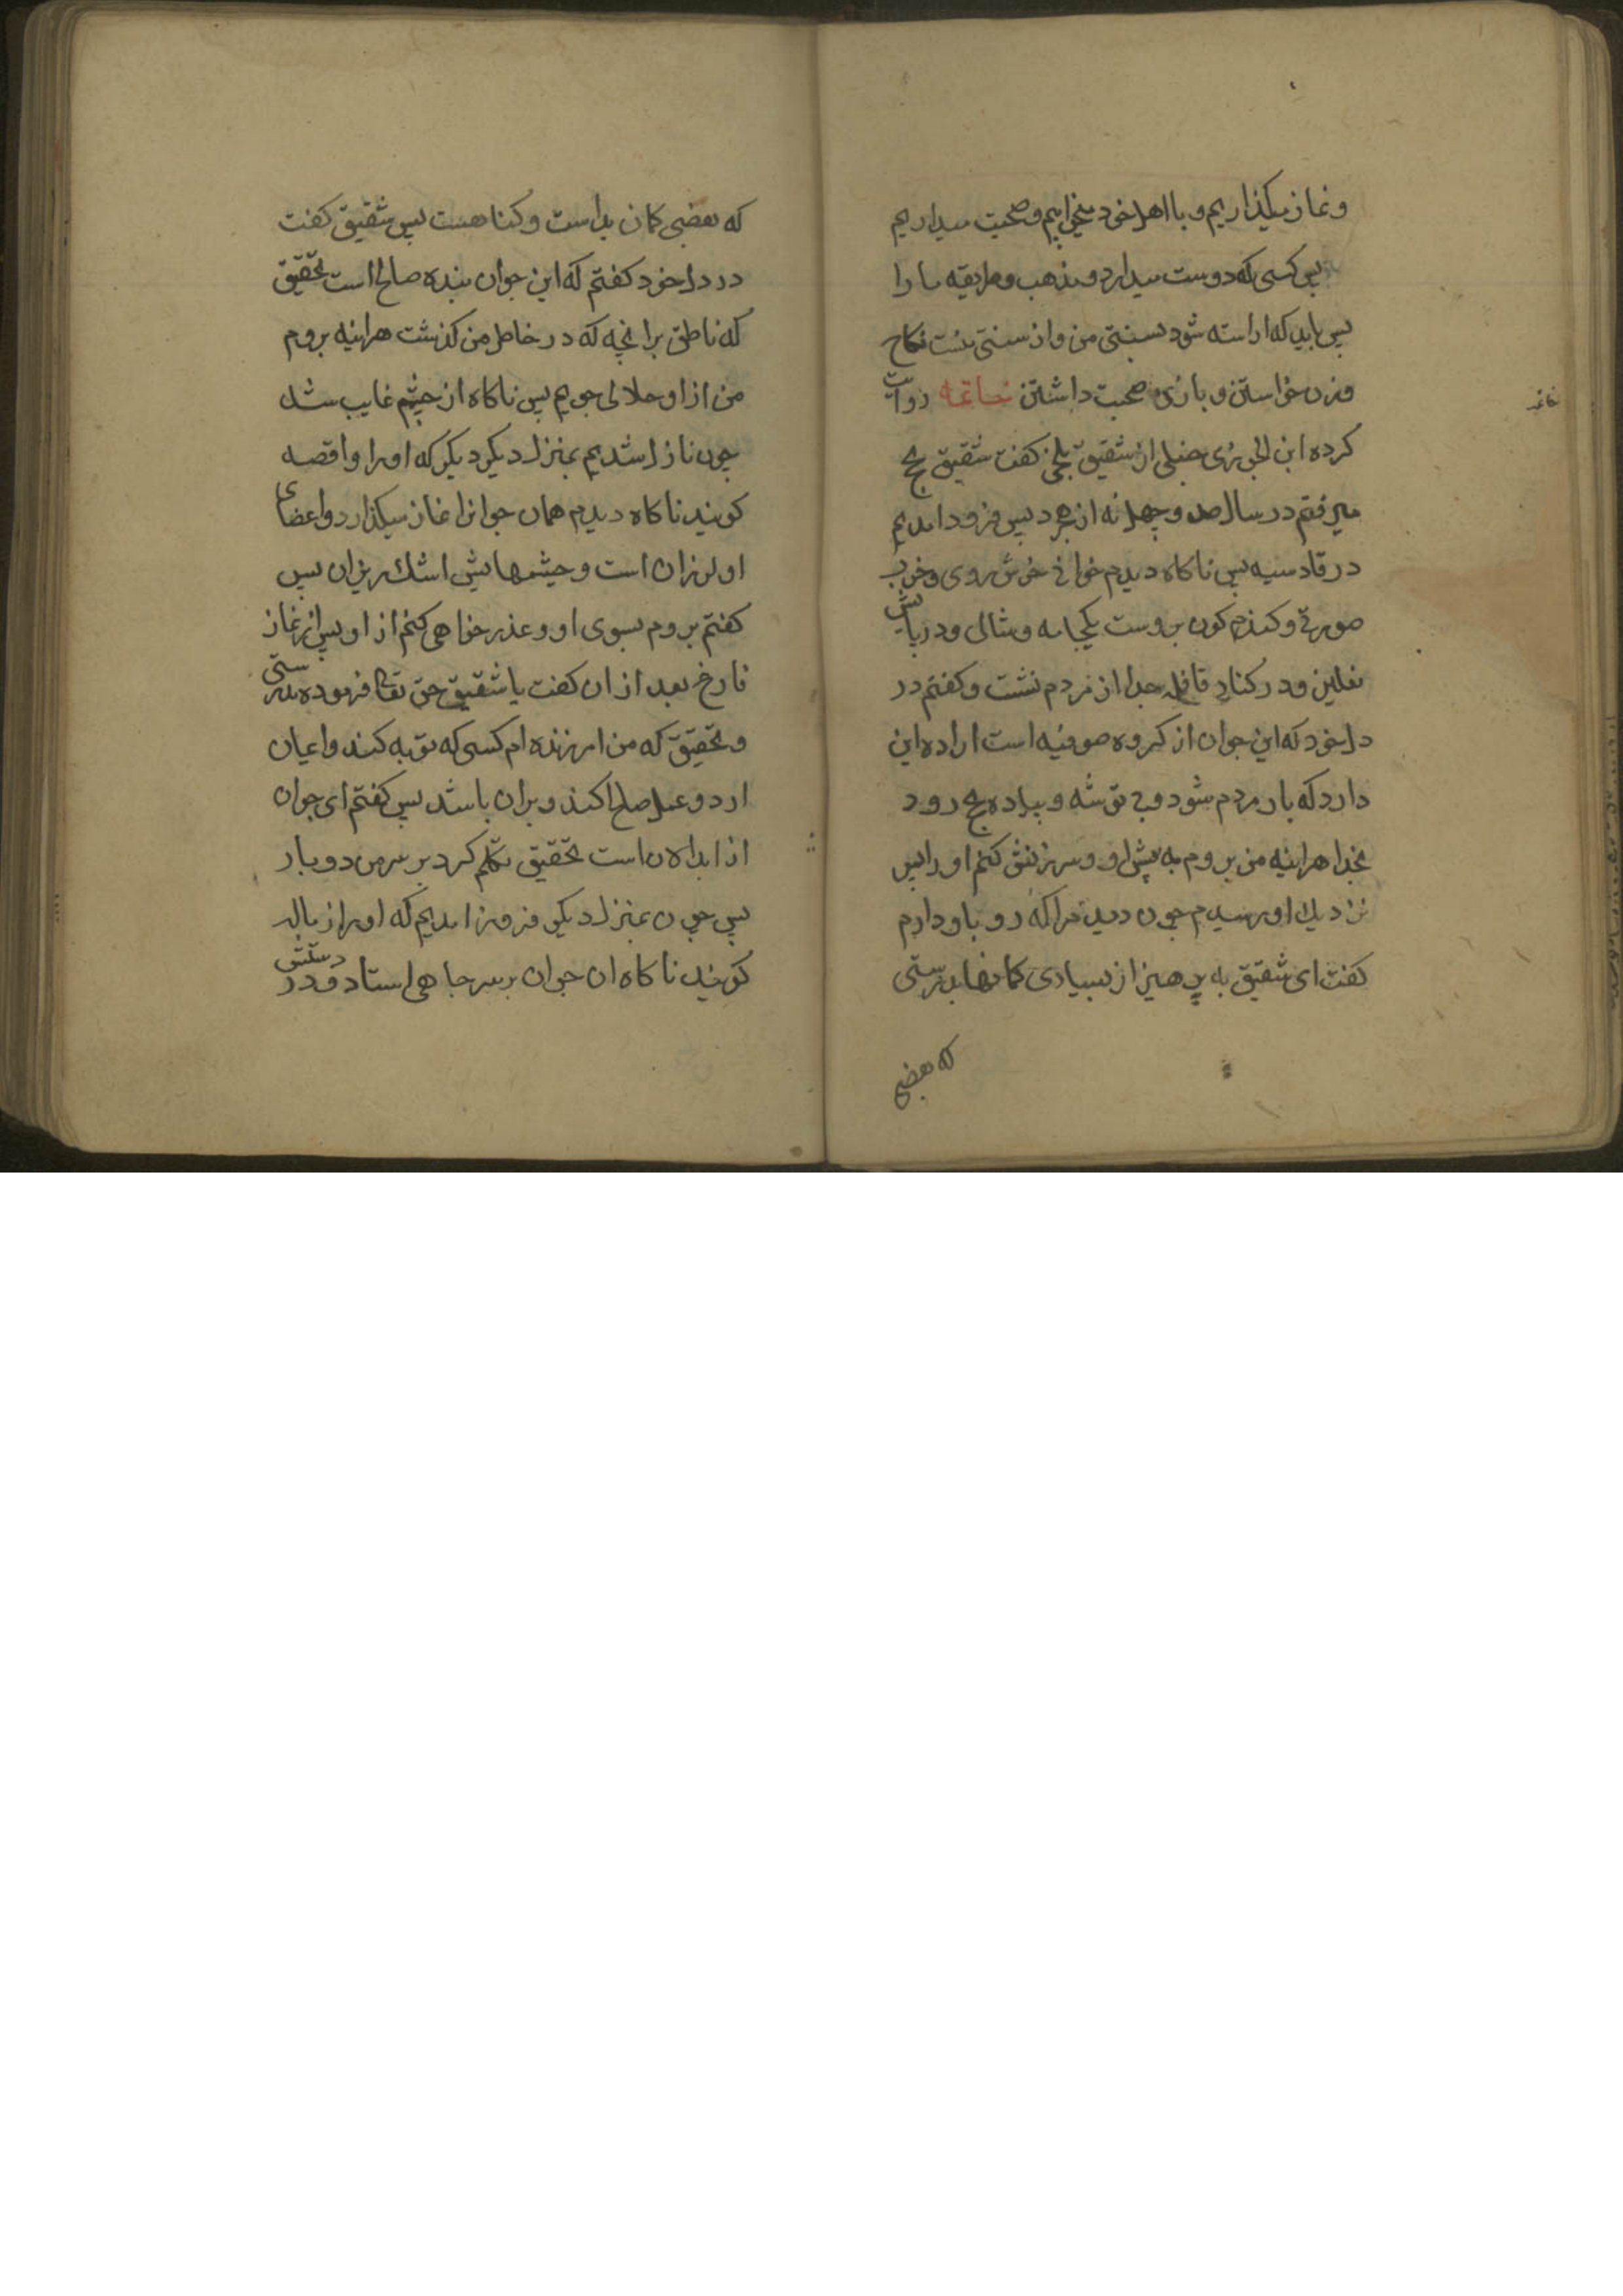 و نماز میکذاریم و با اهل خود میخوابیم و صحبت میداریم
پس کسی که دوست میدارد مذهب و طریقه ما را
پس باید که اراسته شود بسنتی من و از سنتی منست نکاح
و زن خواستن و با زن صحبت داشتن خاتمه روایت
کرده ابن الجوزی حنبلی از شقیق بلخی کفت شقیق بحج
میرفتم در سال صد و چهل نه از هجرد پس فرود امدیم
در قادسیه پس ناکاه دیدم جوانی خوش روی و خوب
صورتی و کندم کون بروست یکجامه و شالی و در پایش
نعلین و در کنار قافله جدا از مردم نشت و کفتم در
دل خود که این جوان از کروه صوفیه است اراده این
دارد که بار مردم شود و بی توشه و پیاده بحج رود
بخدا هراینه من بروم به پیش او و سرزنش کنم او را پس
نزدیك او رسیدم چون دید مرا که رو باو دارم
کفت ای شقیق به پرهیز از بسیاری کمانها بدرستی
که بعضی
خاتمه
که بعضی کمان بداست و کناهست پس شقیق کفت
در دل خود کفتم که این جوان بنده صالح است بتحقیق
که ناطق برانچه که در خاطر من کذشت هراینه بروم
من از او حلالی جویم پس ناکاه از چشم غایب شد
چون نازل شدیم بمنزل دیکر دیکر که اورا واقصه
کویند ناکاه دیدم همان جوانرا نماز میکذارد و اعضای
او لرزان است و چشمهایش اشك ریزان پس
کفتم بروم بسوی او و عذر خواهی کنم از او پس از نماز
فارغ بعد از ان کفت یا شقیق حق تعالی فرموده بدرستی
و بتحقیق که من امرزنده ام کسی که توبه کند و ایمان
ارد و عمل صالح کند و بران باشد پس کفتم ای جوان
از ابدالان است بتحقیق تکلم کرد بر سر من دو بار
پس چون بمنزل دیکر فرود امدیم که او را زباله
کویند ناکاه ان جوان بر سر چاهی استاد و در دستش